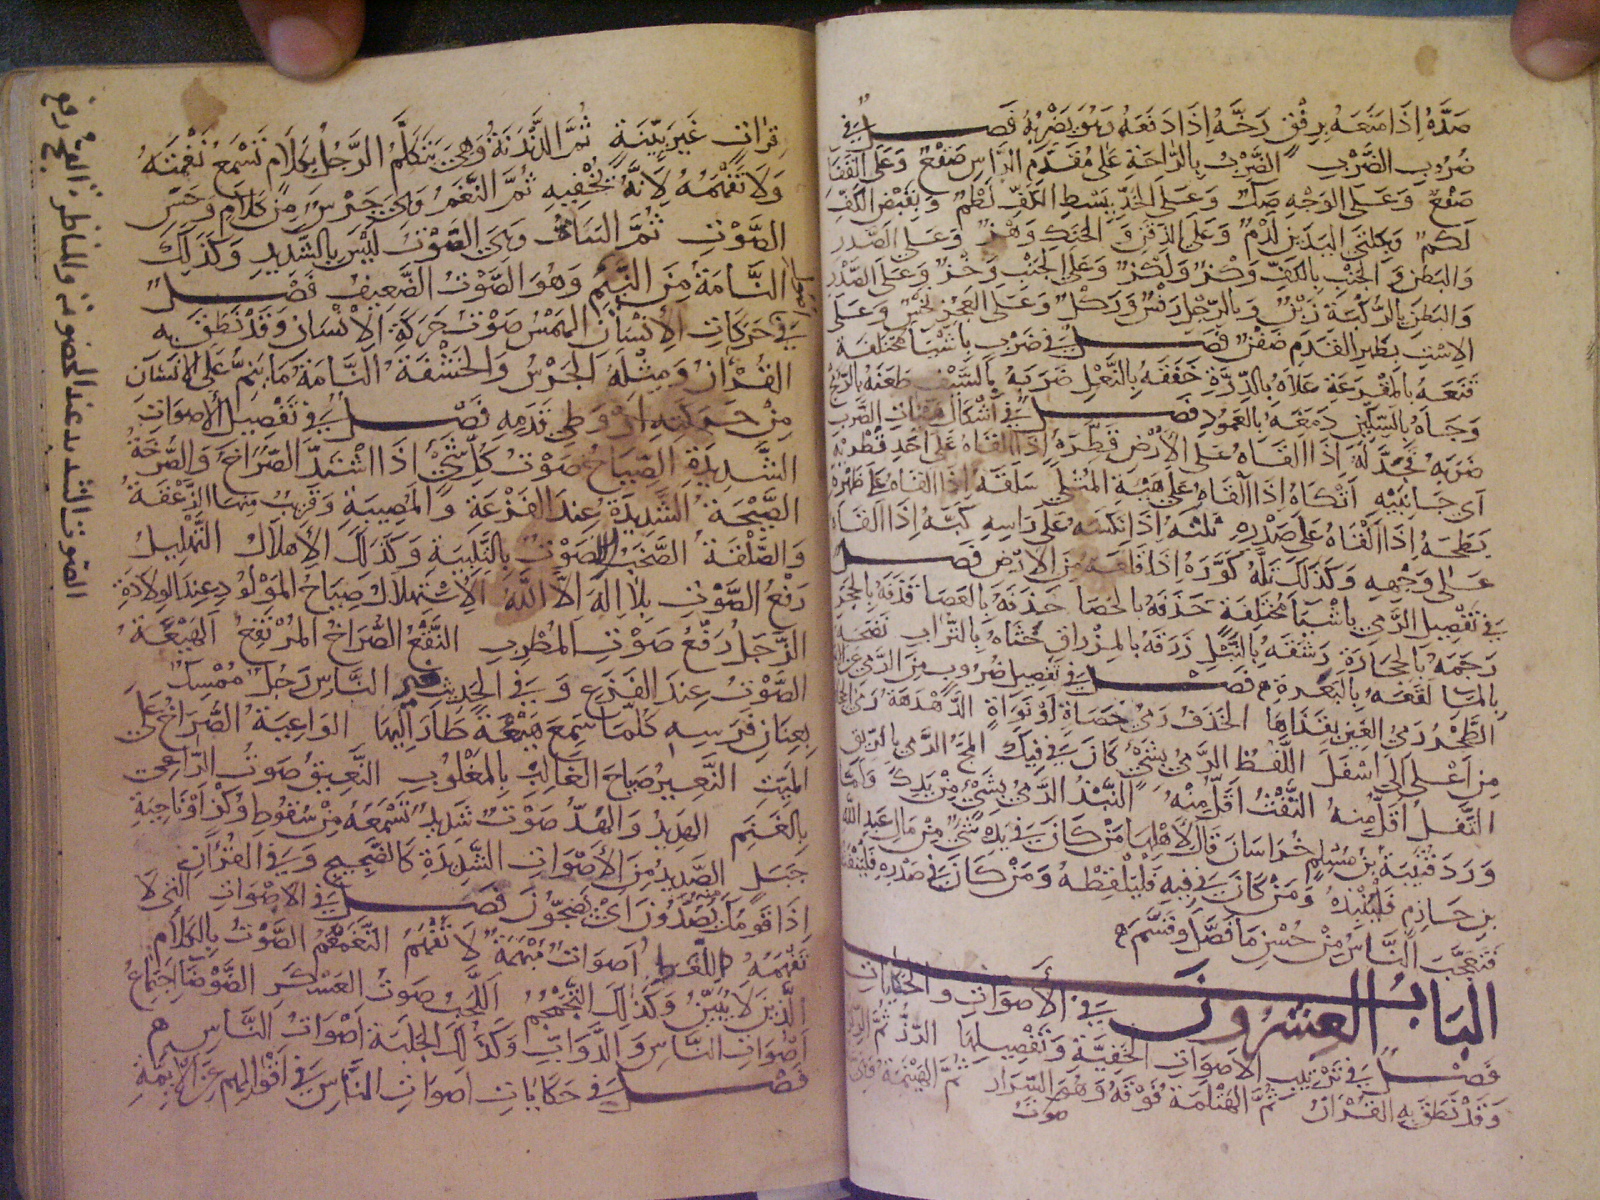 صَدَّهُ إِذَا مَنَعَهُ بِرِفْقٍ زَخَّهُ إِذَا دَفَعَهُ وَهُوَ يَضْرِبُهُ فَصْلٌ فِي
ضُرُوبِ الضَّرْبِ الضَّرْبُ بِالرَّاحَةِ عَلَى مُقَدَّمِ الرَّأْسِ صَقْعٌ وَعَلَى القَفَا
صَفْعٌ وَعَلَى الوَجْهِ صَكٌّ وَعَلَى الخَدِّ بِبَسْطِ الكَفِّ لَطْمٌ وَبِقَبْضِ الكَفِّ
لَكْمٌ وَبِكِلْتَي اليَدَيْنِ لَدْمٌ وَعَلَى الذَّقَنِ وَالحَنَكِ وَهْزٌ وَعَلَى الصَّدْرِ
وَالبَطْنِ وَالجَنْبِ بِالكَفِّ وَكْزٌ وَلَكْزٌ وَعَلَى الجَنْبِ وَخْزٌ وَعَلَى الصَّدْرِ
وَالبَطْنِ بِالرُّكْبَةِ زَبْنٌ وَبِالرِّجْلِ رَفْسٌ وَرَكْلٌ وَعَلَى العَجُزِ نَخْسٌ وَعَلَى
الاسْتِ بِظَهْرِ القَدَمِ ضَفْنٌ فَصْلٌ فِي ضَرْبٍ بِأَشْيَا مُخْتَلِفَة
قَنَعَهُ بِالمِقْرَعَةِ عَلَاهُ بِالدِّرَّةِ خَفَقَهُ بِالنَّعْلِ ضَرَبَهُ بِالسَّيْفِ طَعَنَهُ بِالرُّمْحِ
وَجَأَهُ بِالسِّكِّينِ دَمَغَهُ بِالعَمُودِ فَصْلٌ فِي أَشْكَالِ هَيْئَاتِ الضَّرْبِ
ضَرَبَهُ فَجَدَّلَهُ إِذَا أَلْقَاهُ عَلَى الأَرْضِ قَطَّرَهُ إِذَا أَلْقَاهُ عَلَى أَحَدِ قُطْرَيْهِ
أَي جَانِبَيْهِ أَتْكَأَهُ إِذَا أَلْقَاهُ عَلَى هَيْئَةِ المُتَّكِي سَلَقَهُ إِذَا أَلْقَاهُ عَلَى ظَهْرِهِ
بَطَحَهُ إِذَا أَلْقَاهُ عَلَى صَدْرِهِ نَكَتَهُ إِذَا نَكَسَهُ عَلَى رَاسِهِ كَبَّهُ إِذَا أَلْقَاهُ
عَلَى وَجْهِهِ وَكَذَلِكَ تَلَّهُ كَوَّرَهُ إِذَا قَلَعَهُ مِنَ الأَرْضِ فَصْلٌ
فِي تَفْصِيلِ الرَّمْيِ بِأَشْيَا مُخْتَلِفَة حَذَفَهُ بِالحَصَا حَذَفَهُ بِالعَصَا قَذَفَهُ بِالحَجَرِ
رَجَمَهُ بِالحِجَارَةِ رَشَقَهُ بِالنَّبْلِ زَرَقَهُ بِالمِزْرَاقِ حَثَاهُ بِالتُّرَابِ نَضَحَهُ
بِالمَا لَقَعَهُ بِالبَعْرَةِ فَصْلٌ فِي تَفْصِيلِ ضُرُوبٍ مِنَ الرَّمْيِ
الطَّحْرُ رَمْيُ العَيْنِ بِقَذَاهَا الخَذْفُ رَمْيُ حَصَاةٍ أَوْ نَوَاةٍ الدَّهْدَهَةُ رَمْيُ
مِن أَعْلَى إِلَى أَسْفَل اللَّفْظُ الرَّمْيُ بِشَيْءٍ كَانَ فِي فِيكَ المَجُّ الرَّمْيُ بِالرِّيقِ
التَّفْلُ أَقَلُّ مِنْهُ النَّفْثُ أَقَلُّ مِنْهُ النَّبْذُ الرَّمْيُ بِشَيْءٍ مِنْ يَدِكَ وَلَمَّا
وَرَدَ قُتَيْبَةُ بْنُ مُسْلِمٍ خُرَاسَانَ قَالَ لِأَهْلِهَا مَنْ كَانَ فِي يَدِهِ شَيْءٌ مِنْ مَالِ عَبْدِ اللَّهِ
بْنِ حَازِمٍ فَلْيَنْبِذْهُ وَمَنْ كَانَ فِي فِيهِ فَلْيَلْفِظْهُ وَمَنْ كَانَ فِي صَدْرِهِ فَلْيَنْفُثْهُ
فَتَعَجَّبَ النَّاسُ مِنْ حُسْنِ مَا فَصَّلَ وَقَسَّمَ
البَابُ العِشْرُونَ فِي الأَصْوَاتِ وَالحِكَايَاتِ
فَصْلٌ فِي تَرْتِيبِ الأَصْوَاتِ الخَفِيَّةِ وَتَفْصِيلِهَا الرِّزُّ ثُمَّ الرِّكْزُ
وَقَدْ نَطَقَ بِهِ القُرْآنُ ثُمَّ الهَتْمَلَةُ فَوْقَهُ وَهُوَ السِّرَارُ ثُمَّ الهَيْنَمَةُ وَهِيَ
صَوْتُ
قِرَاةٍ غَيْرِ بَيِّنَةٍ ثُمَّ الدَّنْدَنَةُ وَهِيَ يَتَكَلَّمُ الرَّجُلُ بِكَلَامٍ تَسْمَعُ نَغْمَتَهُ
وَلَا تَفْهَمُهُ لِأَنَّهُ يُخْفِيهِ ثُمَّ النَّغَمُ وَهِيَ جَرْسٌ مِنْ كَلَامٍ وَحُسْنُ
الصَّوْتِ ثُمَّ النَّبْأَةُ وَهِيَ الصَّوْتُ لَيْسَ بِالشَّدِيدِ وَكَذَلِكَ
النَّأْمَةُ مِنَ النَّئِيمِ وَهُوَ الصَّوْتُ الضَّعِيفُ فَصْلٌ
فِي حَرَكَاتِ الإِنْسَانِ الهَمْسُ صَوْتُ حَرَكَةِ الإِنْسَانِ وَقَدْ نَطَقَ بِهِ
القُرْآنُ وَمِثْلُهُ الجَرْسُ وَالخَشْفَةُ النَّامَةُ مَا يَنِمُّ عَلَى الإِنْسَانِ
مِنْ حَرَكَتِهِ أَوْ وَطْيِ قَدَمِهِ فَصْلٌ فِي تَفْصِيلِ الأَصْوَاتِ
الشَّدِيدَةِ الصِّيَاحُ صَوْتُ كُلِّ شَيْءٍ إِذَا اشْتَدَّ الصُّرَاخُ وَالصَّرْخَةُ
الصَّيْحَةُ الشَّدِيدَةُ عِنْدَ الفَزْعَةِ وَالمُصِيبَةِ وَقَرِيبٌ مِنْهَا الزَّعْقَةُ
وَالصَّلْقَةُ الصَّخَبُ الصَّوْتُ بِالتَّلْبِيَةِ وَكَذَلِكَ الإِهْلَالُ التَّهْلِيلُ
رَفْعُ الصَّوْتِ بِلَا إِلَهَ إِلَّا اللَّهُ الاسْتِهْلَالُ صِيَاحُ المَوْلُودِ عِنْدَ الوِلَادَةِ
الزَّجَلُ رَفْعُ صَوْتِ المُطْرِبِ النَّقْعُ الصُّرَاخُ المُرْتَفِعُ الهَيْعَةُ
الصَّوْتُ عِنْدَ الفَزَعِ وَفِي الحَدِيثِ خَيْرُ النَّاسِ رَجُلٌ مُمْسِكٌ
بِعِنَانِ فَرَسِهِ كُلَّمَا سَمِعَ هَيْعَةً طَارَ إِلَيْهَا الوَاعِيَةُ الصُّرَاخُ عَلَى
المَيِّتِ النَّعِيرُ صِيَاحُ الغَالِبِ بِالمَغْلُوبِ النَّعِيقُ صَوْتُ الرَّاعِي
بِالغَنَمِ الهَدِيدُ وَالهَدُّ صَوْتٌ شَدِيدٌ تَسْمَعُهُ مِنْ سُقُوطِ رُكْنٍ أَوْ نَاحِيَةِ
جَبَلٍ الصَّدِيدُ مِنَ الأَصْوَاتِ الشَّدِيدَةِ كَالضَّجِيجِ وَفِي القُرْآنِ
إِذَا قَوْمُكَ مِنْهُ يَصِدُّونَ أَيْ يَضِجُّونَ فَصْلٌ فِي الأَصْوَاتِ الَّتِي لَا
تُفْهَمُ اللَّغَطُ أَصْوَاتٌ مُبْهَمَةٌ لَا تُفْهَمُ التَّغَمْغُمُ الصَّوْتُ بِالكَلَامِ
الَّذِي لَا يُبَيَّنُ وَكَذَلِكَ التَّجَمْجُمُ اللَّجَبُ صَوْتُ العَسْكَرِ الضَّوْضَا اجْتِمَاعُ
أَصْوَاتِ النَّاسِ وَالدَّوَابِّ وَكَذَلِكَ الجَلَبَةُ أَصْوَاتُ النَّاسِ
فَصْلٌ فِي حِكَايَاتِ أَصْوَاتِ النَّاسِ فِي أَقْوَالِهِم عَنْ أَيِمَّةِ
الصوت الشديد عند الخصومة والمناظرة